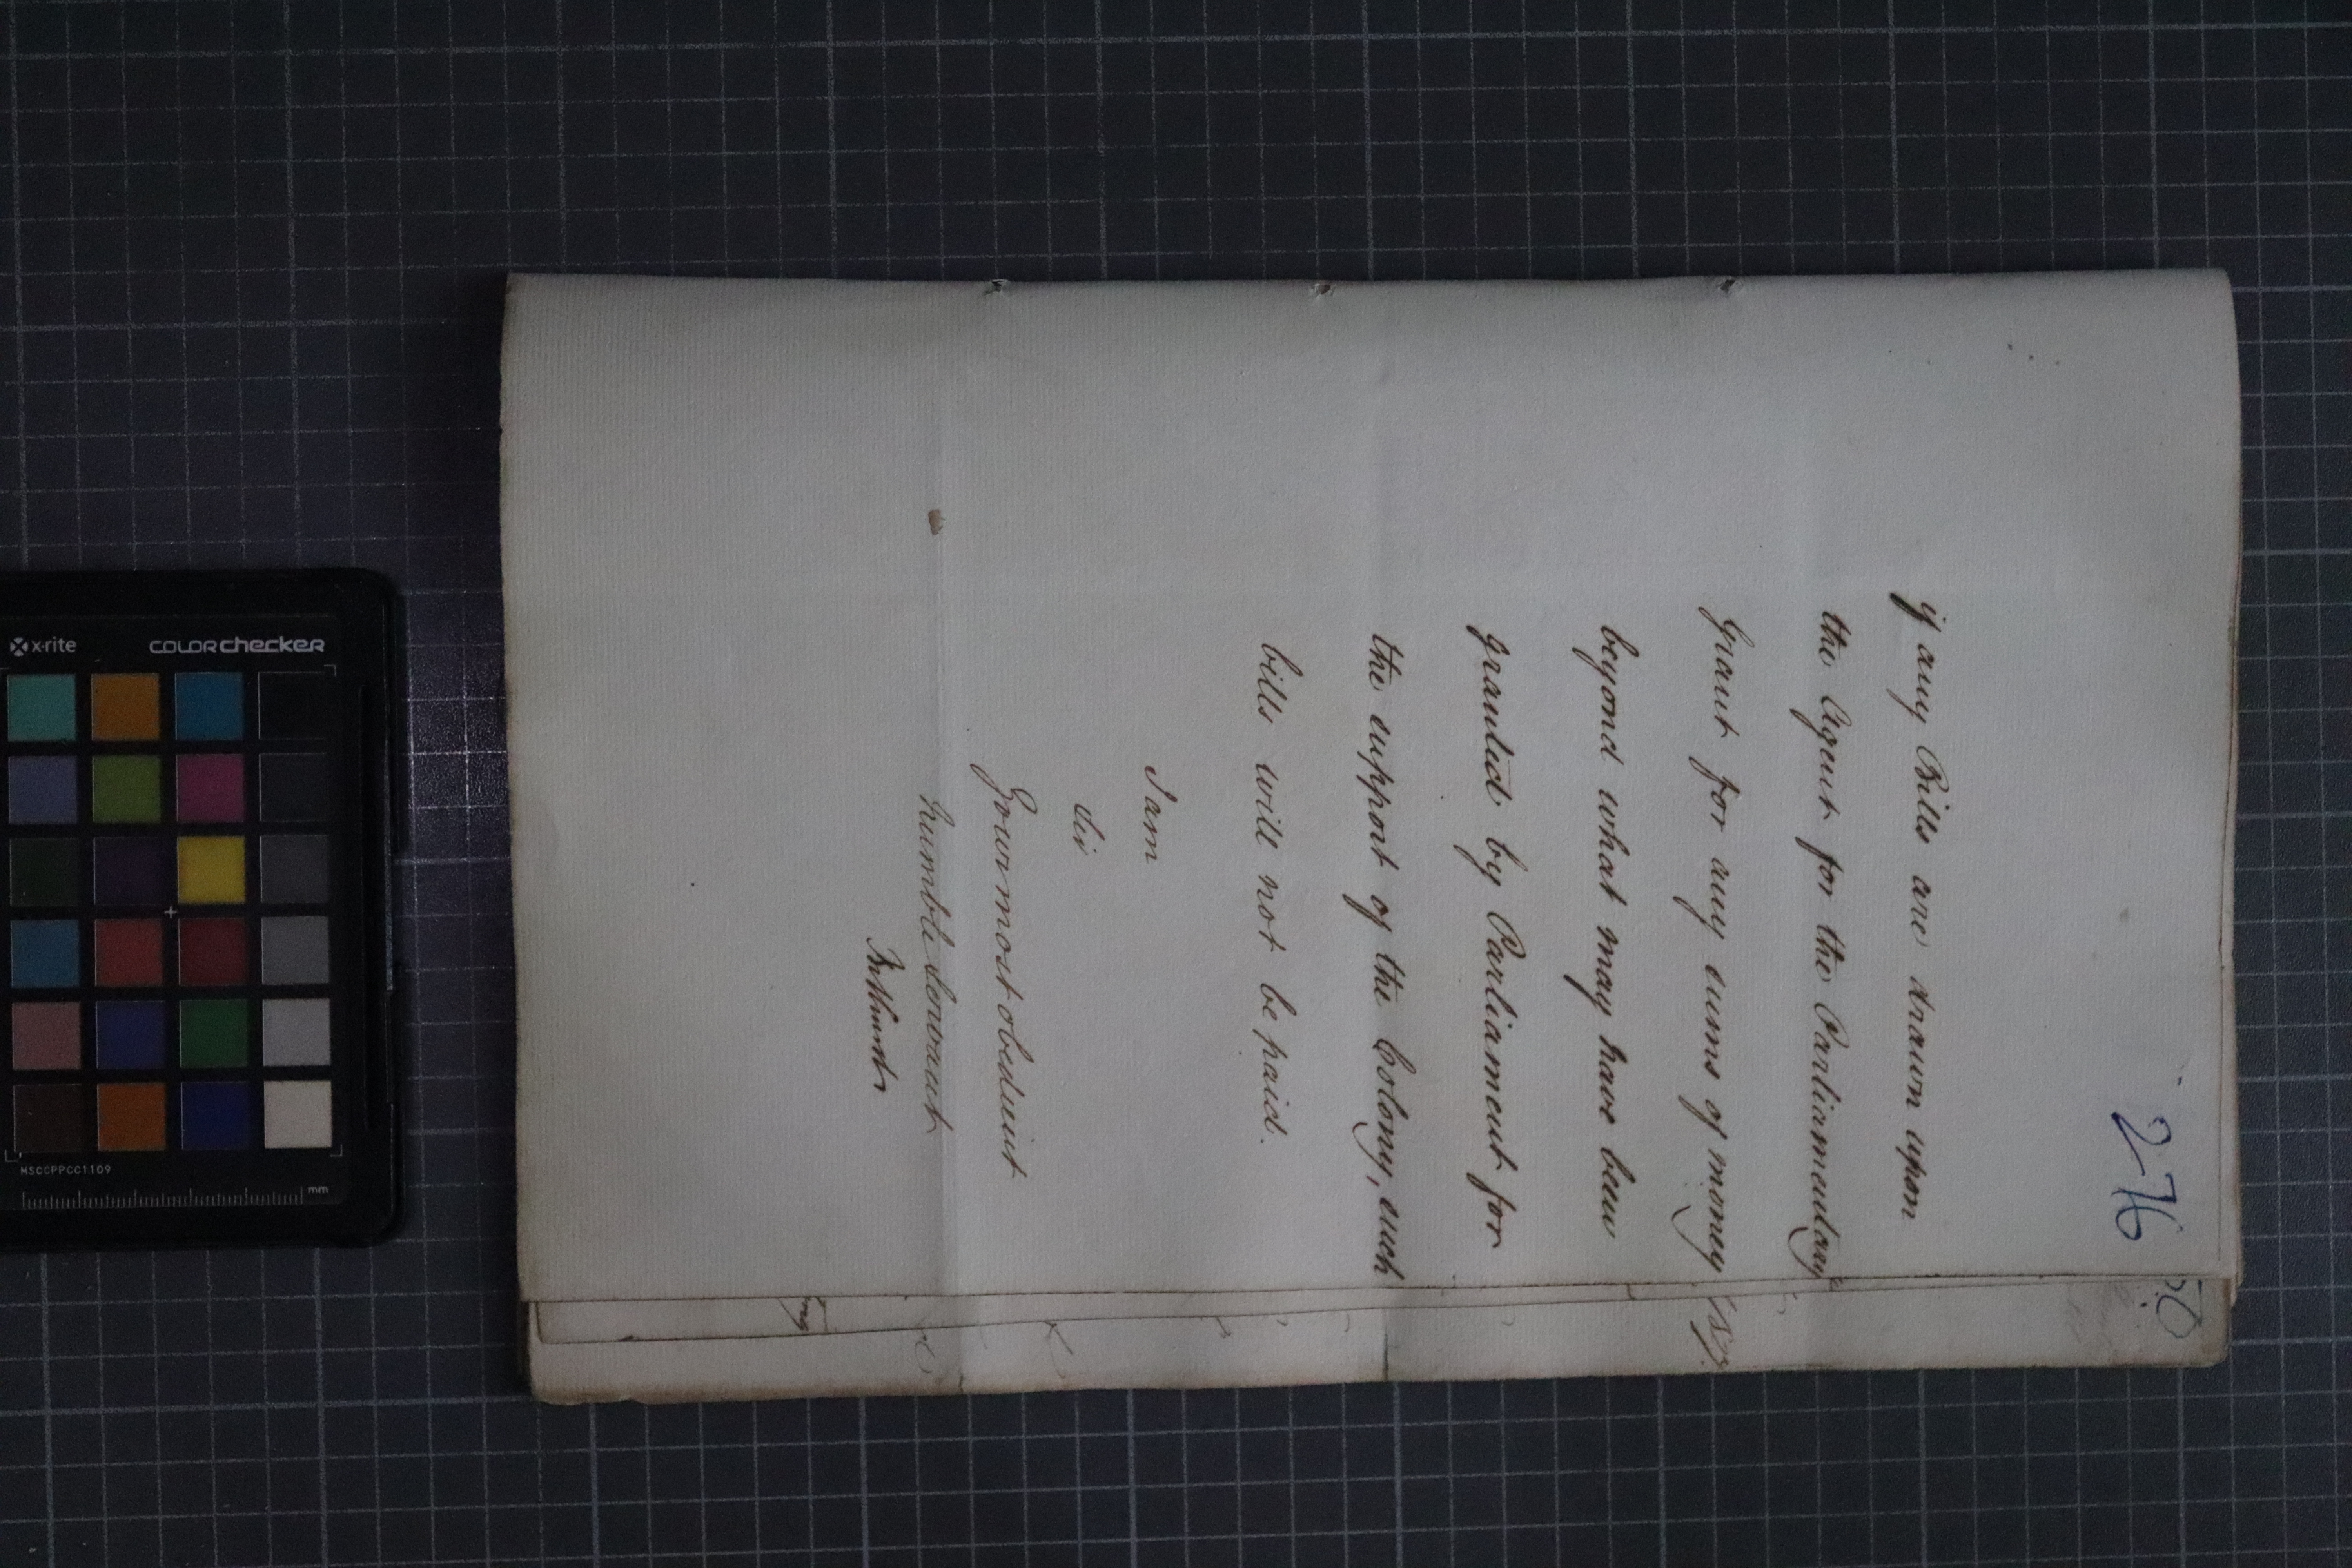 276
if any Bills are drawn upon
the Agent for the Parliamentary
Grant for any sums of money
beyond what may have been
granted by Parliament for
the support of the Colony, such
bills will not be paid.
I am
Sir
Your most obedient
humble Servant
Bathurst
50
x-rite
colorchecker
MSCCPPCC1109
mm